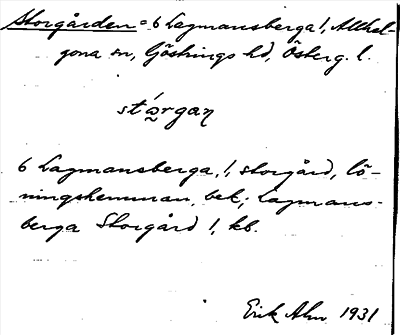 Storgården = 6 Lagmansberga !, Allhel-
gona sn, Göstrings hd, Österg. l.
stǿrgan
6 Lagmansberga, !, storgård, lö-
ningshemman, bek; Lagmans-
berga Storgård !, kb.
Erik Ahn 1931